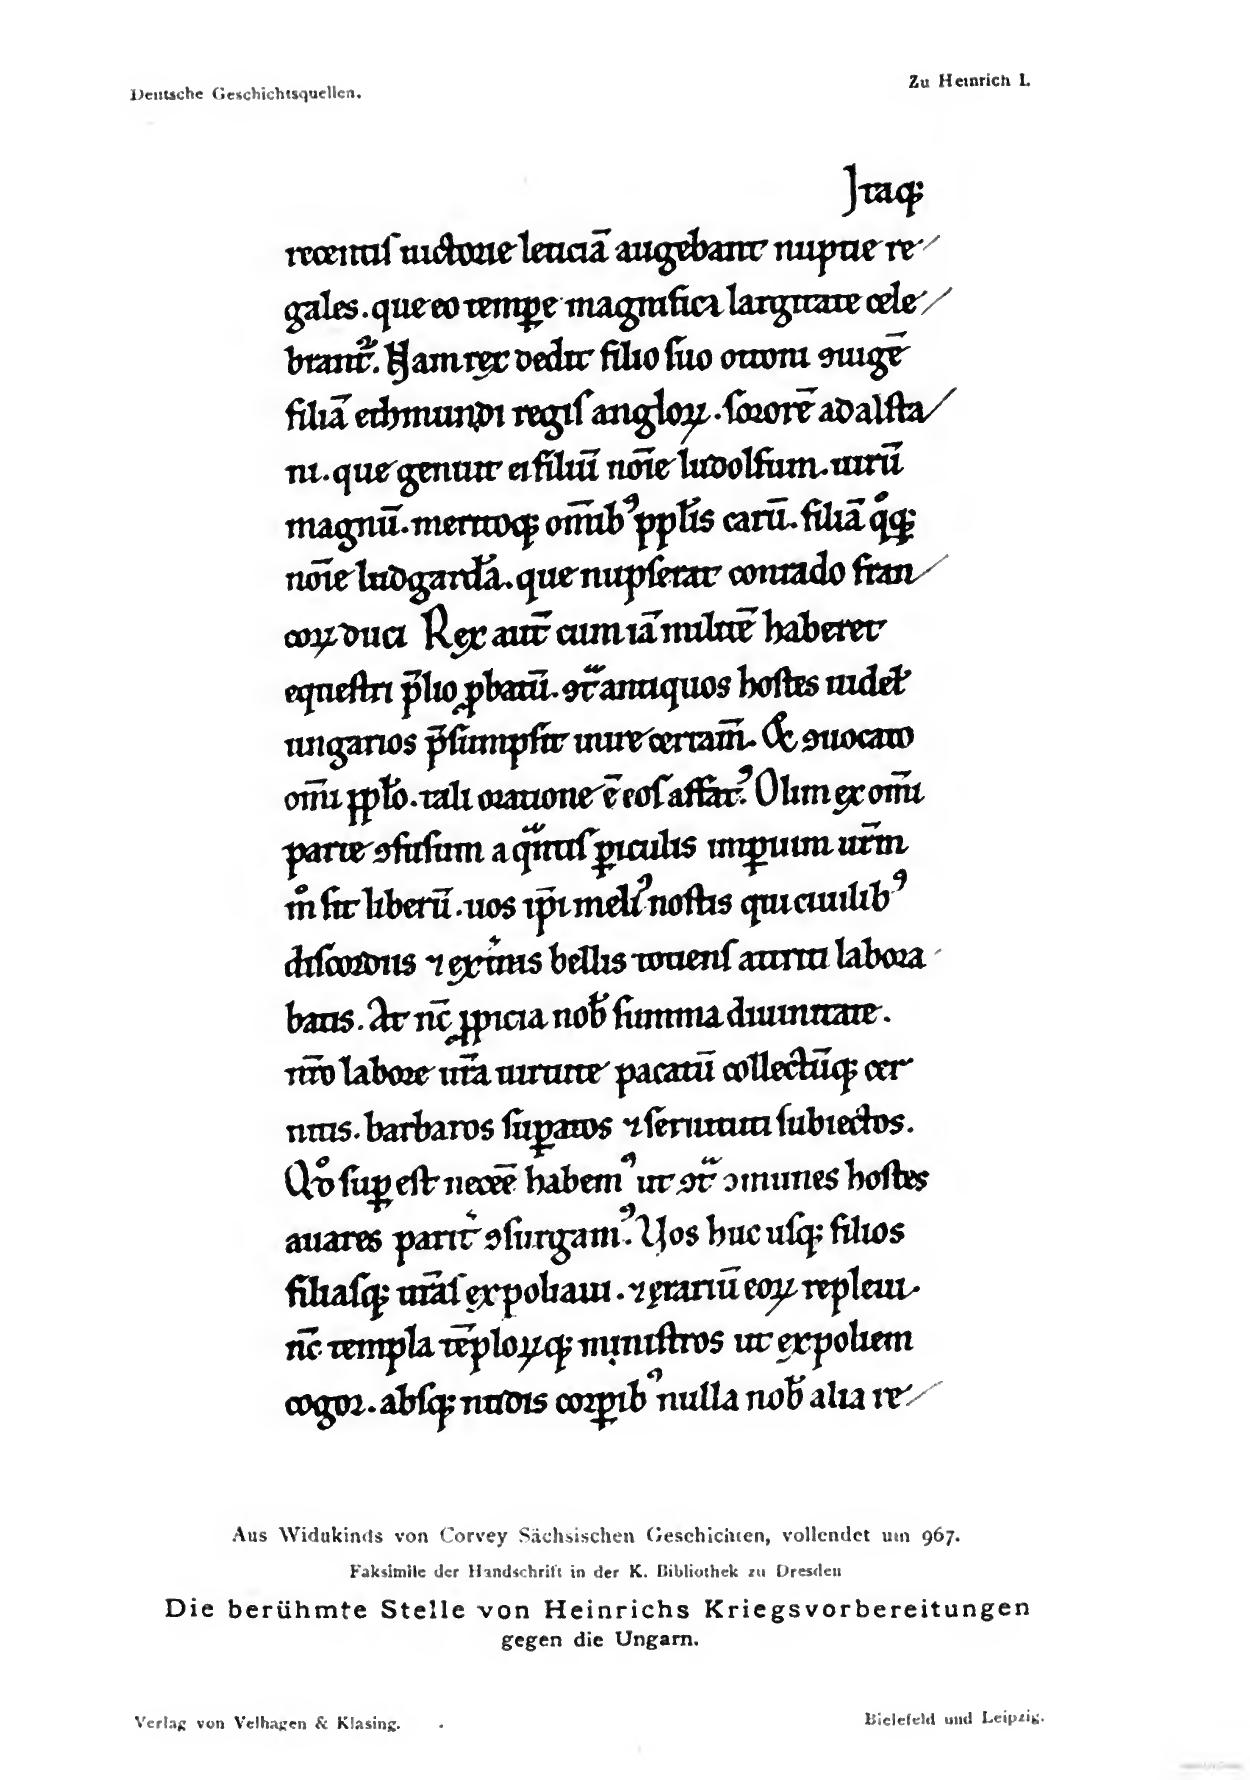 Deutsche Geschichtsquellen.
Zu Heinrich I.
Itaq;
recentis uictorie leticiā augebant nuptie re
gales. que eo temꝑe magnifica largitate cele
brant᷑. Nam rex dedit filio suo ottoni ꝯiugē
filiā ethmundi regis angloꝝ. sororē adalsta
ni. que genuit ei filiū noīe ludolfum. uirū
magnū. meritoq; om̄ibꝰ ppl̓is carū. filiā q̊q;
noīe ludgardā. que nupserat conrado fran
coꝝ duci Rex aut̄ cum iā militē haberet
equestri p̄lio ꝓbatū. ꝯtͣ antiquos hostes uidel̓
ungarios p̄sumpsit inire certam̄. Et ꝯuocato
om̄i ppl̓o. tali oratione ē eos affatꝰ. Olim ex om̄i
parte ꝯfusum a qͣntis ꝑiculis imꝑium ur̄m
m̊ sit liberū. uos ip̄i meliꝰ nostis qui ciuilibꝰ
discordiis ⁊ext̓nis bellis tociens attriti labora
batis. At nc̄ ꝓpicia nob̓ summa diuinitate.
nr̄o labore ur̄a uirtute pacatū collectūq; cer
nitis. barbaros suꝑatos ⁊ seruituti subiectos.
Qd̊ suꝑest neceē habemꝰ ut ꝯtͣ ꝯmunes hostes
auares parit̓ ꝯsurgamꝰ. Uos huc usq; filios
filiasq; ur̄as expoliaui. ⁊ erariū eoꝝ repleui.
nc̄ templa tēploꝝq; ministros ut expoliem
cogor. absq; nudis corꝑibꝰ nulla nob̓ alia re
Aus Widukinds von Corvey Sächsischen Geschichten, vollendet um 967.
Faksimile der Handschrift in der K. Bibliothek zu Dresden
Die berühmte Stelle von Heinrichs Kriegsvorbereitungen
gegen die Ungarn.
Verlag von Velhagen & Klasing.
Bielefeld und Leipzig.